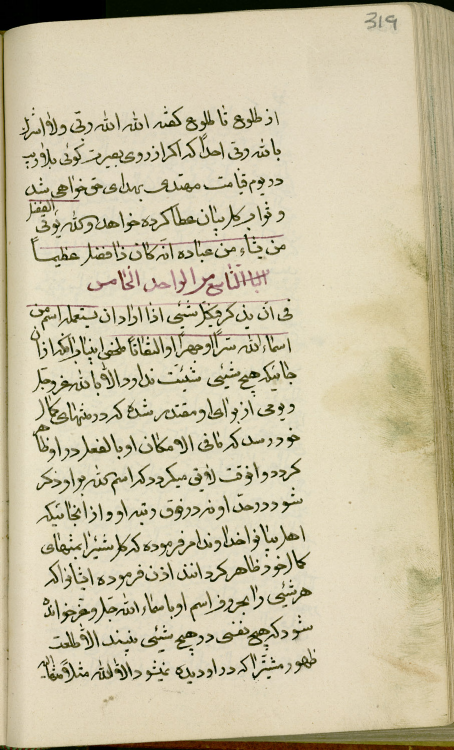 319
از طلوع تا طلوع گفته الله الله ربی ولا اشرک
بالله ربی احدا که اگر از روی بصیرت گوئی بلا ریب
در یوم قیامت مهتدی بهدای حق خواهی شد
و ثواب کل بیان عطا کرده خواهد و کذلک یؤتی الفضل
من یشاء من عباده انه کان ذا فضل عظیما
الباب التاسع من الواحد الخامس
فی ان یذکر فی کل شیئ اذا اراد ان یستعمله اسم من
اسماء الله سرا او جهرا او التفاتا ملخص این باب آنکه از آن
جائیکه هیچ شیئی شیئیت ندارد الا بالله عز و جل
و بوحی از برای او مقتدر شده که در منتهای کمال
خود رسد که تا فی الامکان او بالفعل در او ظاهر
گردد و آنوقت لایق میگردد که اسم الله بر او ذکر
شود در حد او نه در فوق رتبه او و از آنجائیکه
اهل بیان را خداوند امر فرموده که کل شیئ را بمنتهای
کمال خود ظاهر گردانند اذن فرموده ایشانرا که
هر شیئی را بحروف اسم او باسماء الله جل و عز خوانده
شود که هیچ نفسی در هیچ شیئی نبیند الا طلعت
ظهور مشیت را که در او دیده نمیشود الا الله مثلا